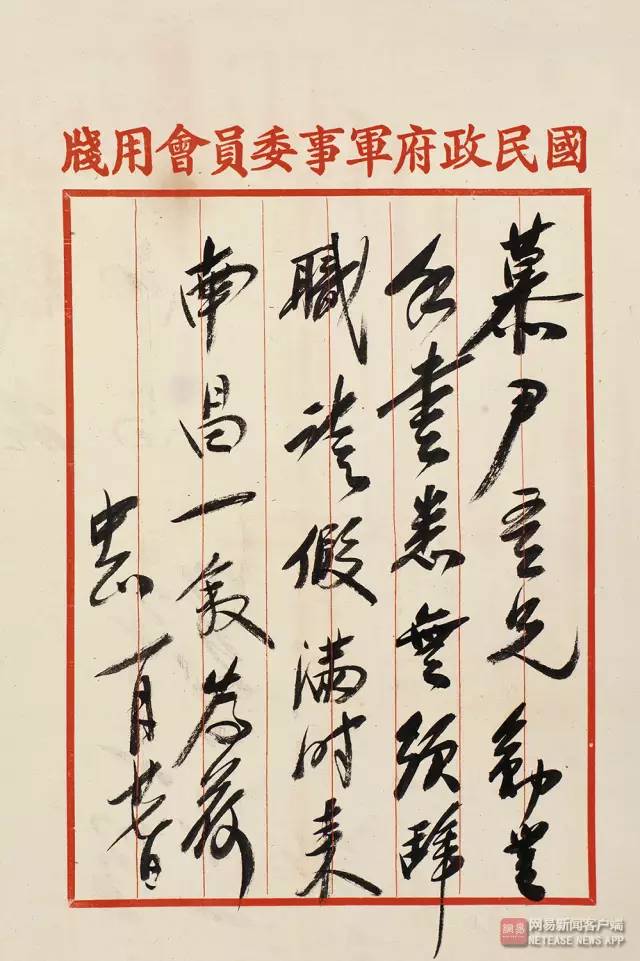 國民政府軍事委員會用牋
慕尹吾兄勛鑒
書悉無須辭
職請假滿时来
南昌一敘為荷
中正 一月廿日
網易
网易新闻客户端
NETEASE NEWS APP